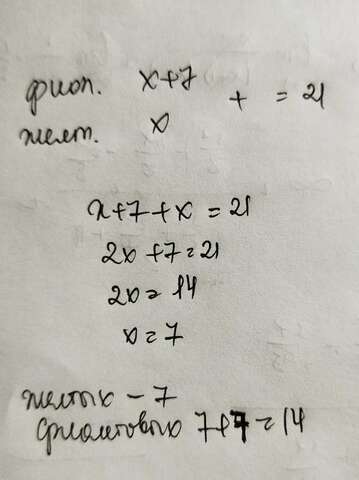 фиол. x+7
+ = 21
желт. x
x+7+x=21
2x+7=21
2x=14
x=7
желтых - 7
фиолетовых 7+7=14